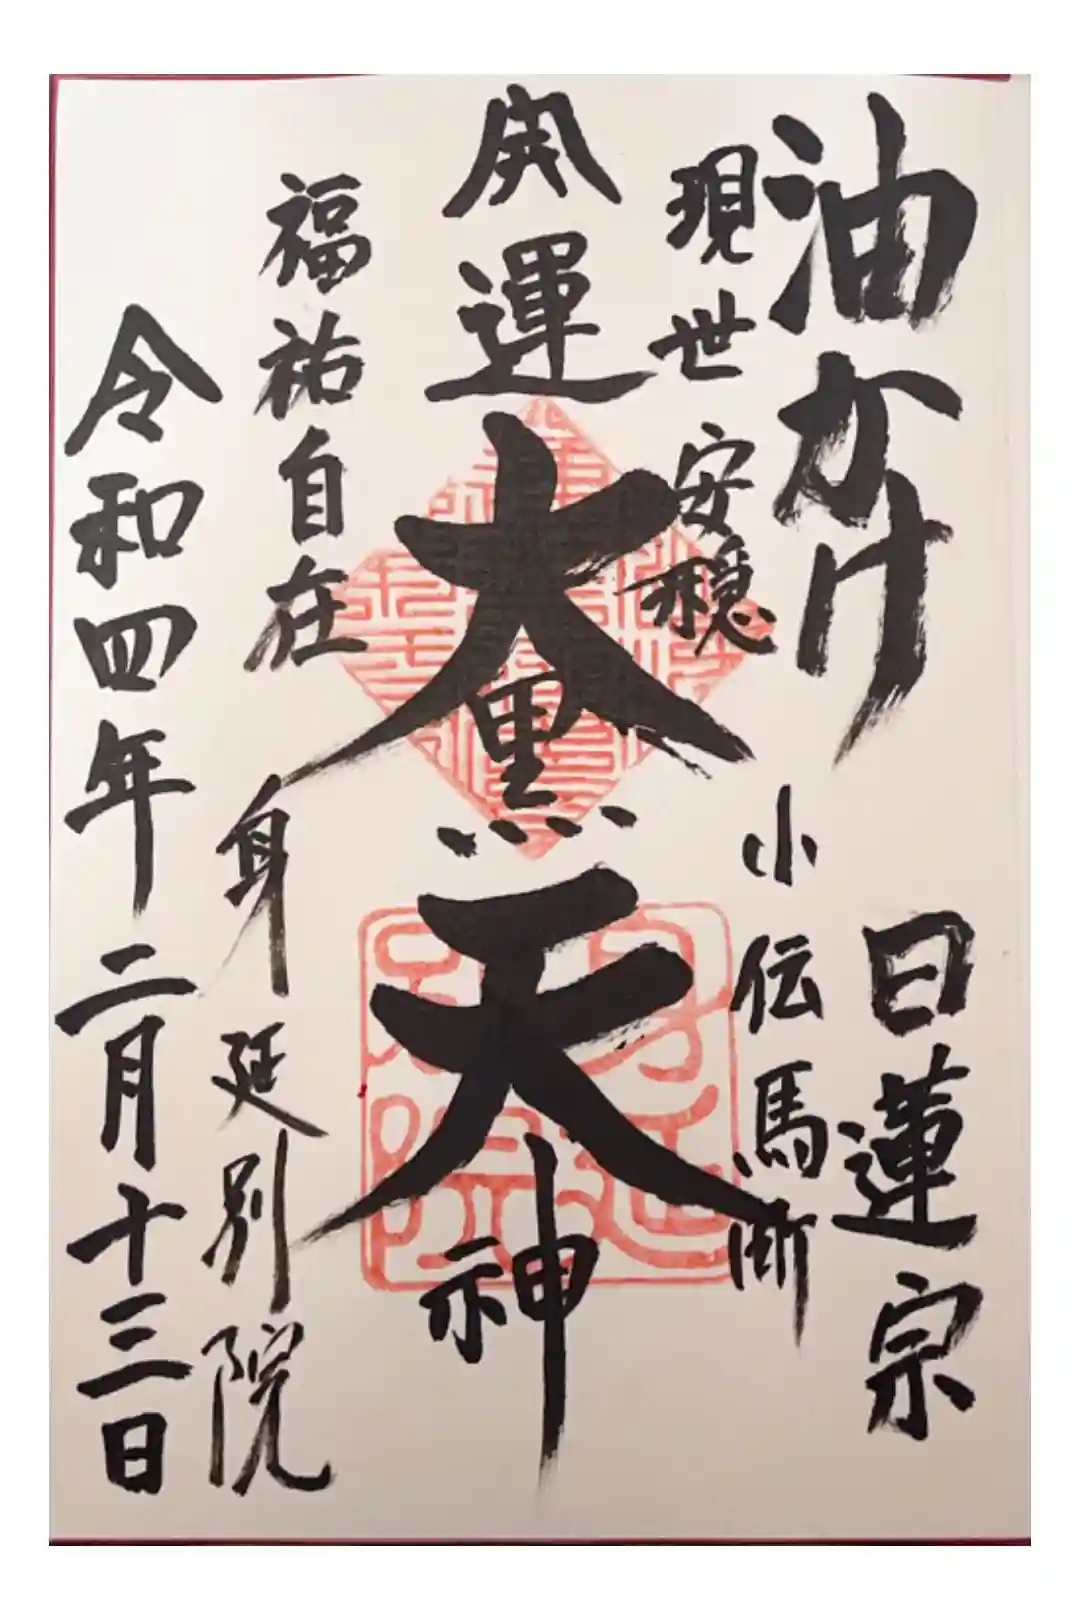 油かけ
日蓮宗
現世安穏
小伝馬町
開運大黒天神
福祐自在
身延別院
令和四年二月十三日